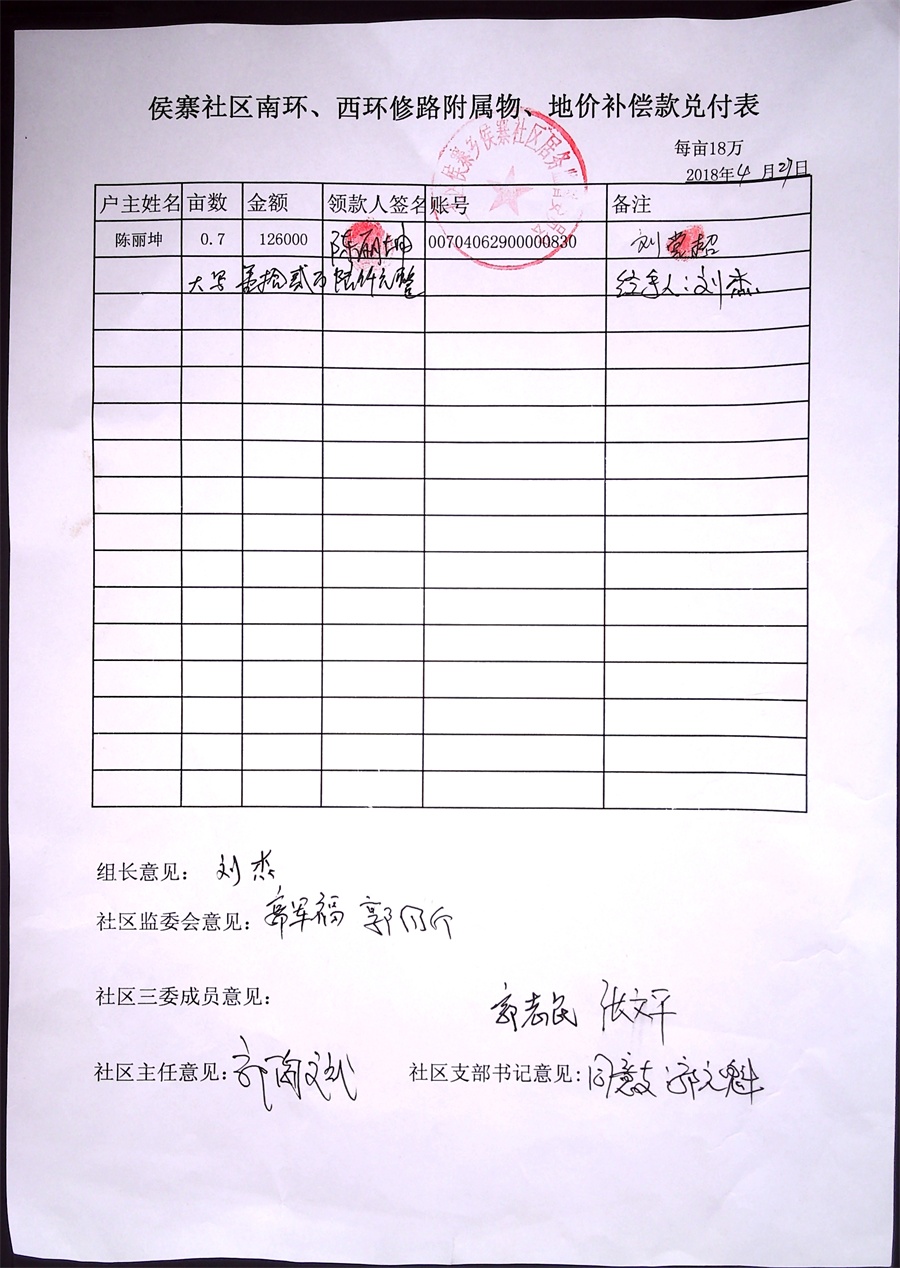 侯寨社区南环、西环修路附属物、地价补偿款兑付表
每亩18万
2018年4月27日
户主姓名 亩数 金额 领款人签名 账号 备注
陈丽坤 0.7 126000 陈丽坤 00704062900000830 刘超
大写 壹拾贰万陆仟元整 经手人:刘杰
组长意见: 刘杰
社区监委会意见: 郭军福 郭
社区三委成员意见: 郭志民 张文平
社区主任意见: 郭 社区支部书记意见: 同意支 郭元魁
侯寨乡侯寨社区居务监